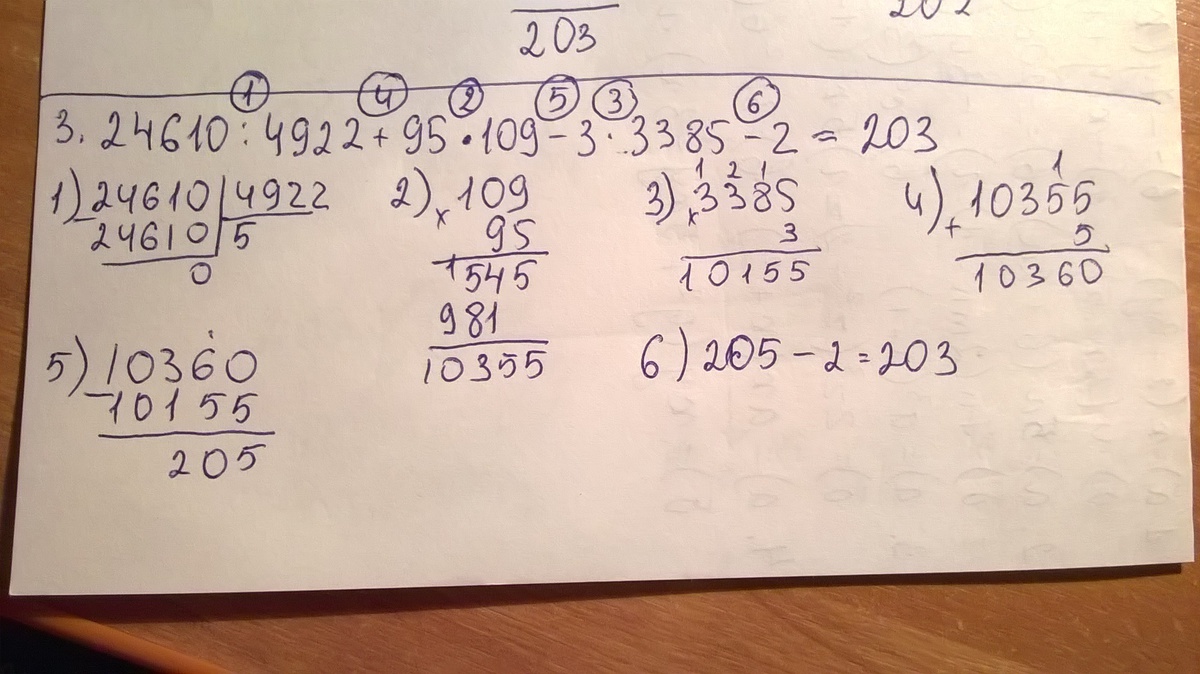 203
202
① ④ ② ⑤ ③ ⑥
3. 24610 : 4922 + 95 · 109 - 3 · 3385 - 2 = 203
1) 24610 | 4922
- 24610 | 5
0
2) 109
x 95
1545
981
10355
1 2 1
3) 3385
x 3
10155
1
4) 10355
+ 5
10360
5) 10360
- 10155
205
6) 205 - 2 = 203